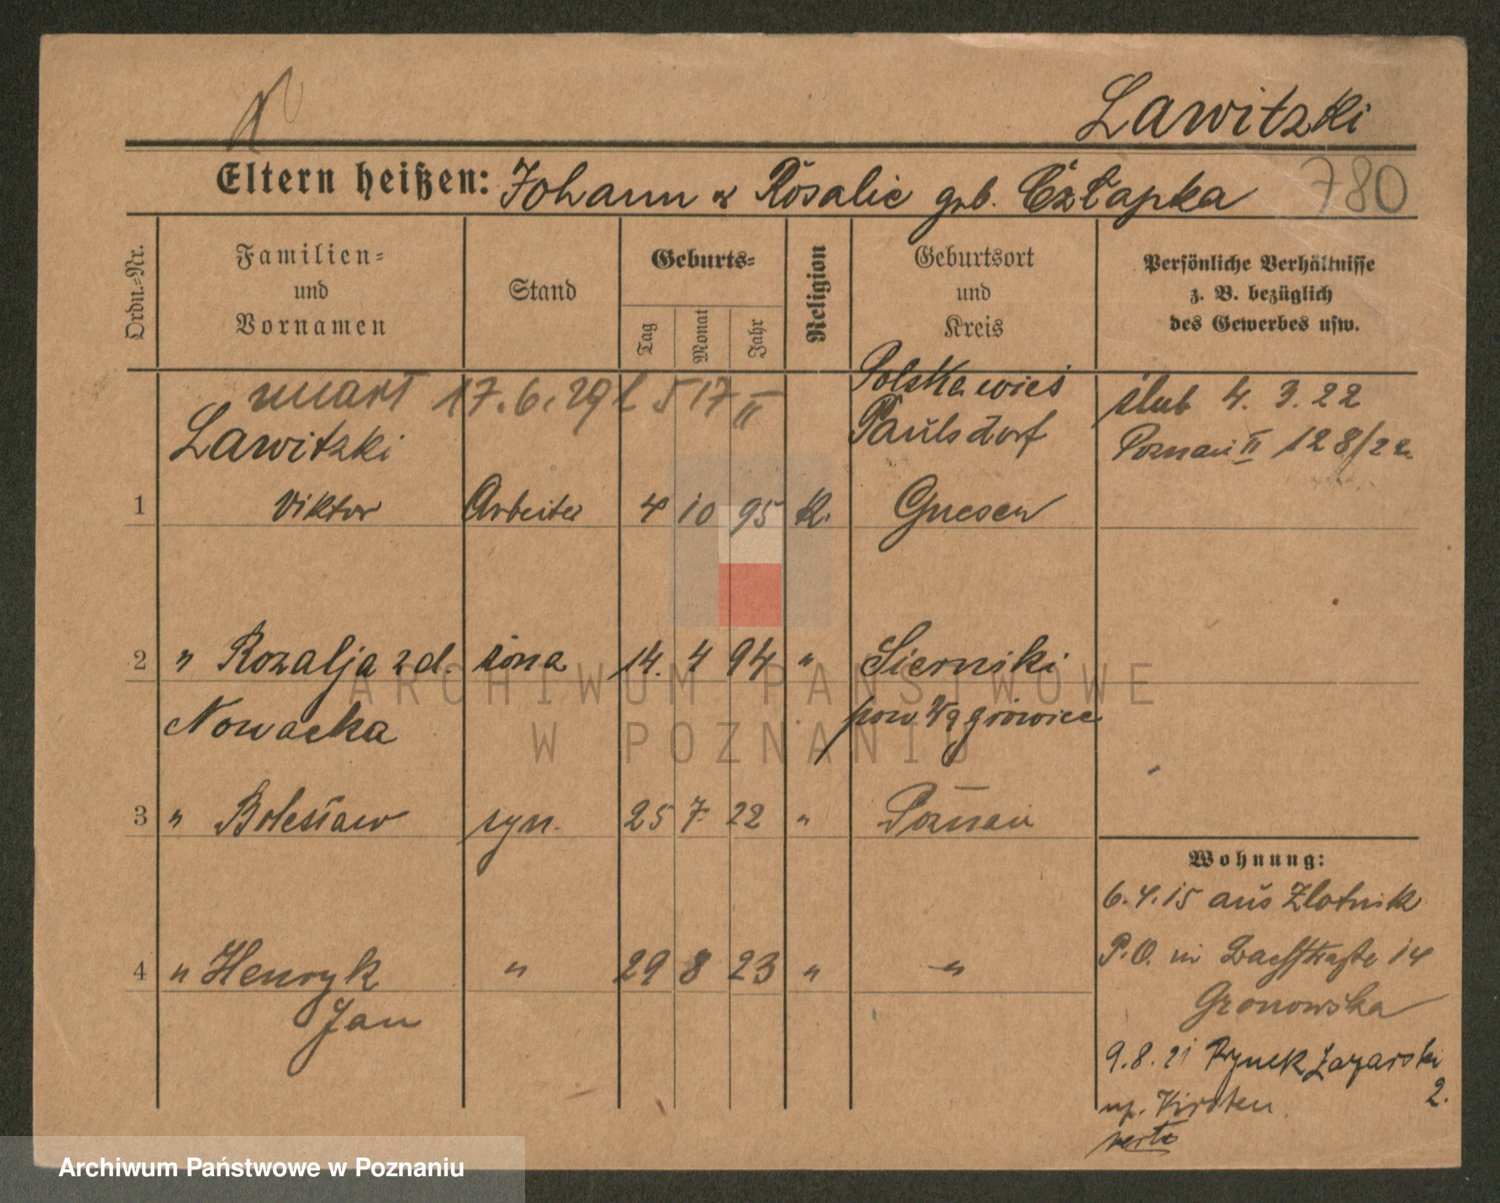 Lawitzki
Eltern heißen: Johann u Rosalie geb. Człapka 780
Ordn.-Nr.
Familien-
und
Vornamen
Stand
Geburts-
Tag
Monat
Jahr
Religion
Geburtsort
und
Kreis
Persönliche Verhältnisse
z. B. bezüglich
des Gewerbes usw.
zmarł 17.6.29 517 II
Polska wieś
Paulsdorf
ślub 4. 3. 22
Poznań II 128/22
Lawitzki
1 Viktor Arbeiter 4 10 95 K. Gnesen
2 " Rozalja zd. żona 14. 4 94 " Sierniki
Nowacka pow Wągrowiec
3 " Bolesław syn. 25 7 22 " Poznań
4 " Henryk " 29 8 23 " "
Jan
Wohnung:
6.4.15 aus Zlotnik
P.O. in Bachstraße 14
Gronowska
9.8.21 Rynek Łazarski
2.
np. Kirsten
verte
ARCHIWUM PAŃSTWOWE
W POZNANIU
Archiwum Państwowe w Poznaniu